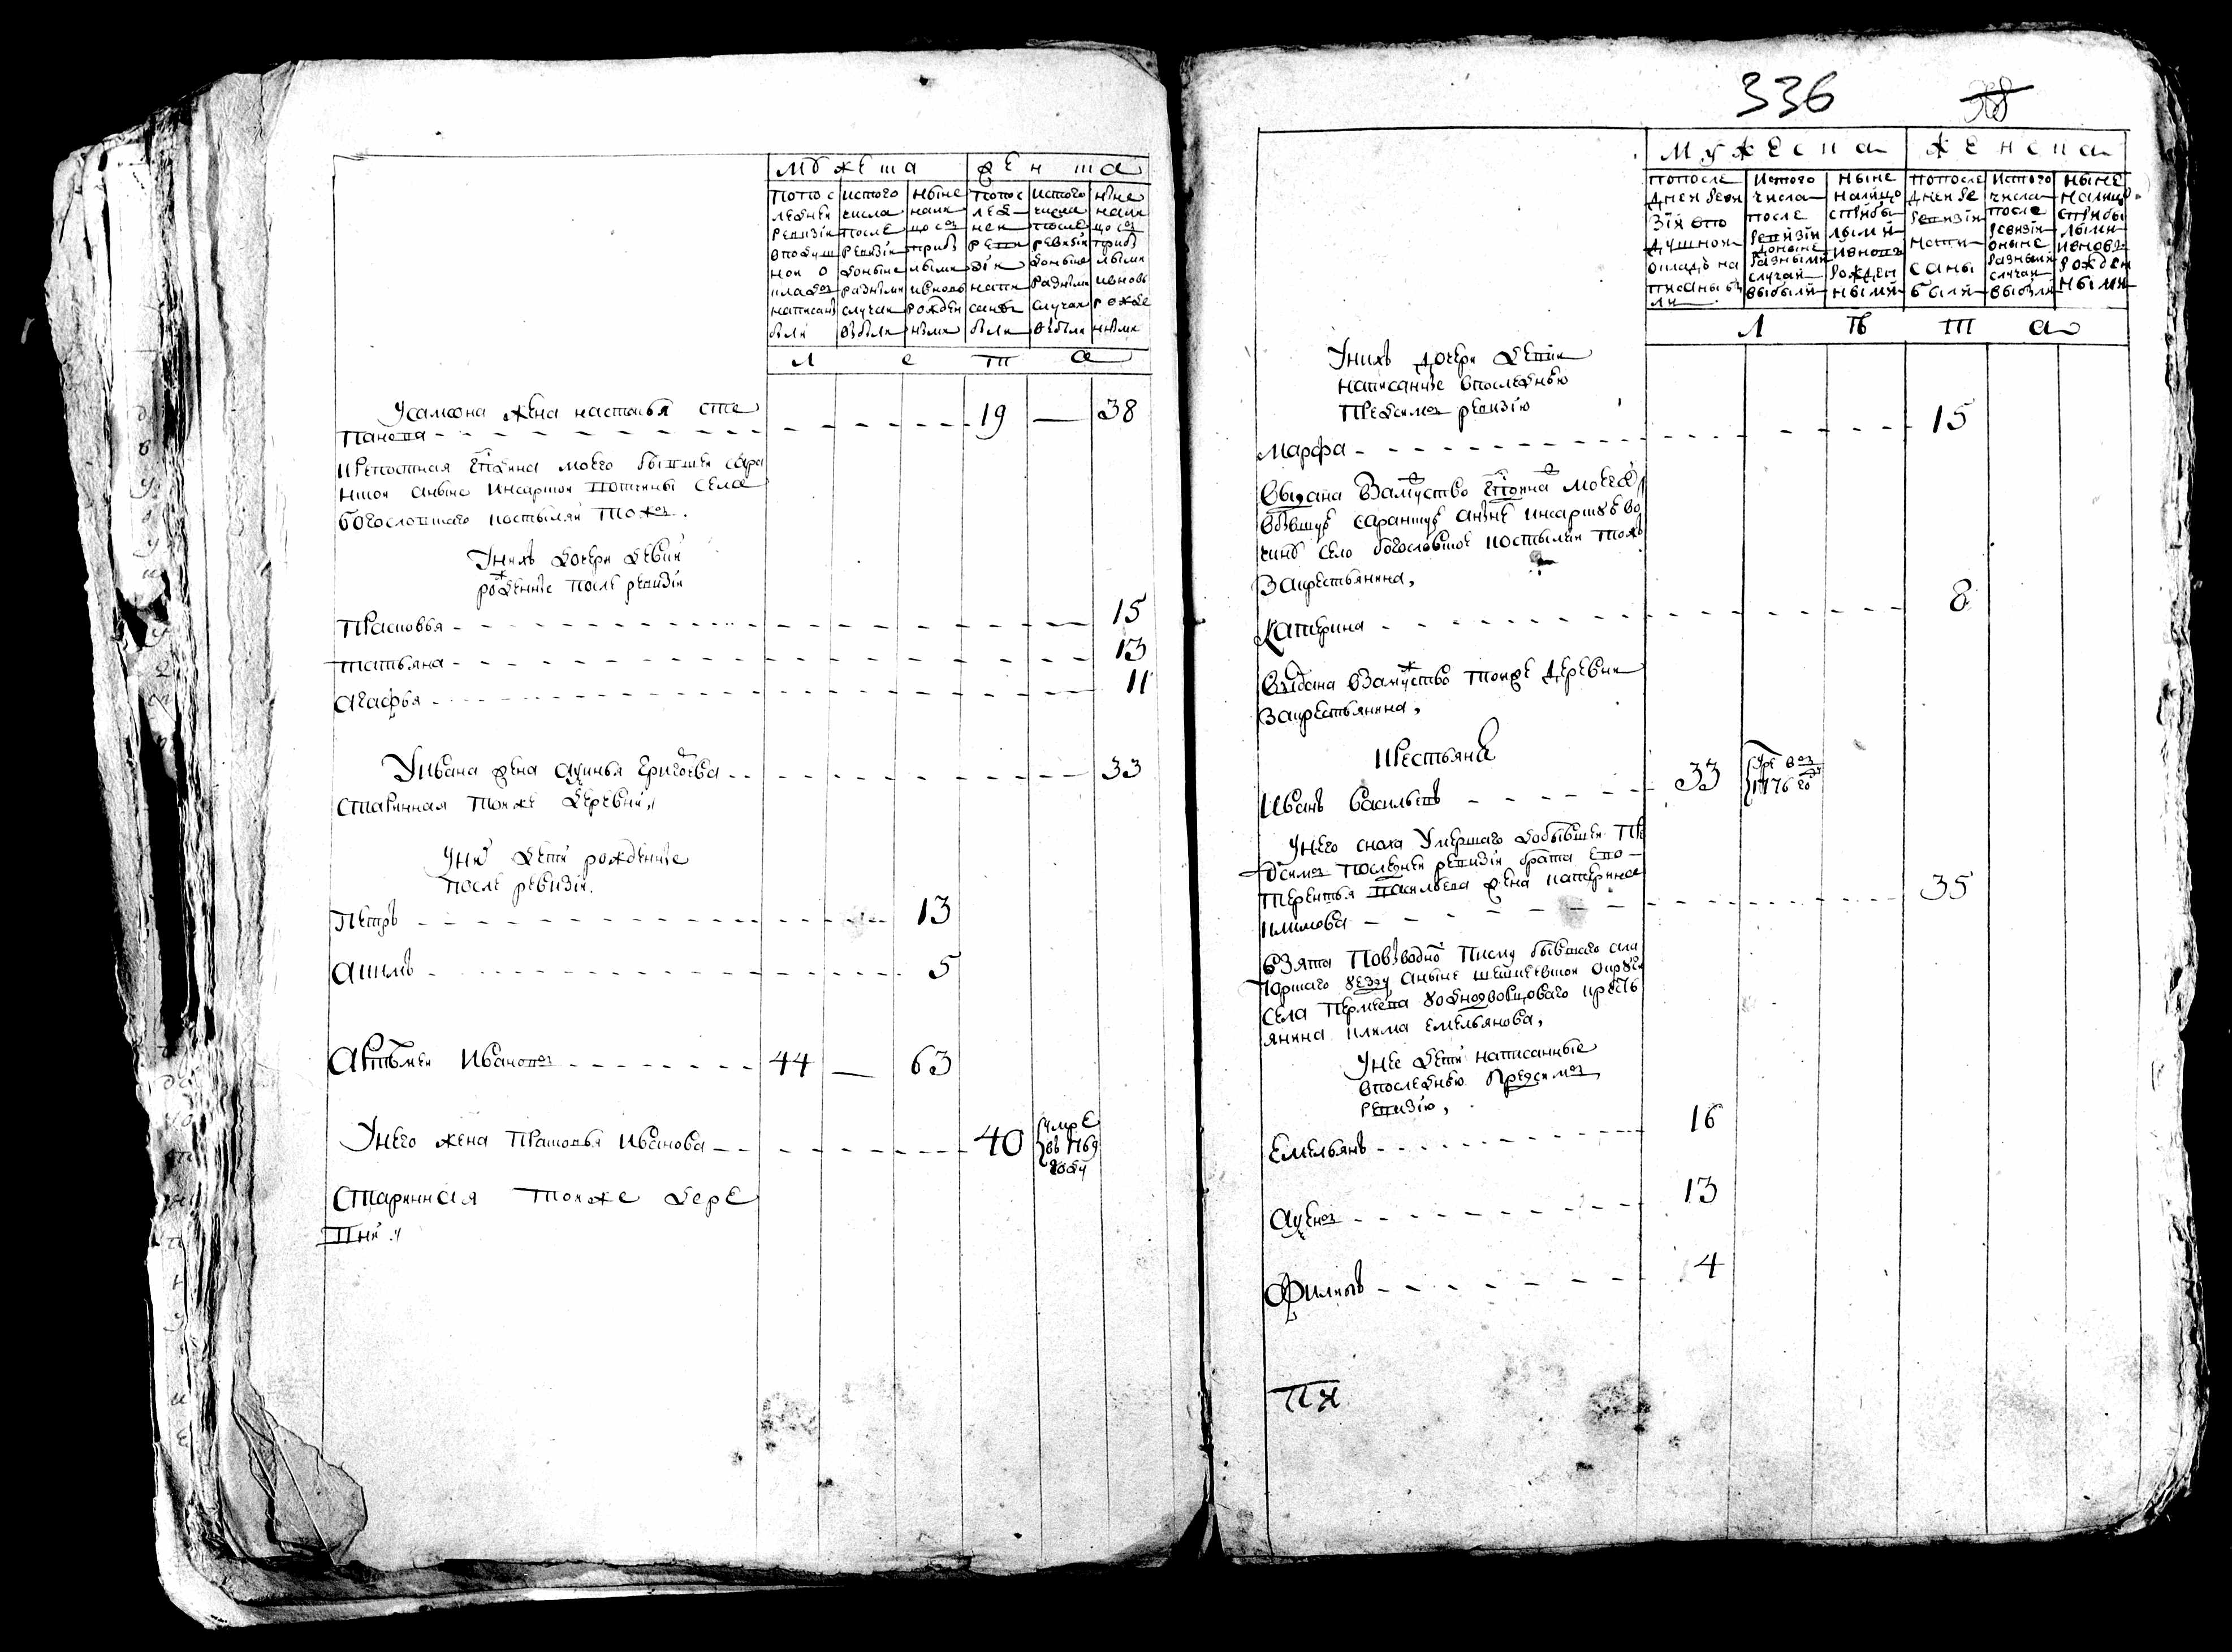 Мужеска
Женска
Попос
ледней
ревизіи
вподуш
ной о
кладъ
написаны
были
истого
числа
после
ревизіи
доныне
разными
случаи
выбыли
ныне
нали
цо съ
прибы
лыми
ивновь
рожден
ными
попос
лед
ней
реви
зіи
напи
саны
были
истого
числа
после
ревизіи
доныне
разными
случаи
выбыли
ныне
нали
цо съ
прибы
лыми
ивновь
рожде
ными
л е т а
Усамсона жена настасья сте 19 — 38
панова
крепостная моего бывшей сара
нской аныне инсарской вотчины села
богословскаго костыляй тожъ.
Унихъ дочери девки
рожденные после ревизіи
Прасковья 15
татьяна 13
агафья 11
Уивана жена аксинья григорева 33
старинная тойже деревни
Унихъ дети рожденные
после ревизіи.
Петръ 13
акимъ 5
Артемей Ивановъ 44 — 63
Унего жена Прасковья Иванова 40 умре
въ 1769
году
старинная тойже дере
вни
336
Мужеска
женска
попосле
дней реви
зіи впо
душной
окладъ на
писаны бы
ли
истого
числа
после
ревизіи
доныне
разными
случаи
выбыли
ныне
налицо
сприбы
лыми
ивновь
рожден
ными
попосле
дней ре
визіи
напи
саны
были
истого
числа
после
ревизіи
доныне
разными
случаи
выбыли
ныне
налицо
сприбы
лыми
ивновь
рожден
ными
л ѣ т а
Унихъ дочери девки
написанные впоследнюю
предсимъ ревизію
марфа 15
выдана взамуство моего
вбывшую саранскую аныне инсарскую во
чину село богословское костыляй тожъ
закрестьянина,
катерина 8
выдана взамужство тойже деревни
закрестьянина,
крестьяне
Иванъ васильевъ 33 умре въ
1776 го
Унего сноха умершаго добывшей пре
дсимъ последней ревизіи брата ево
терентья васильева жена катерина
климова 35
взята повыводному писму бывшаго
уезду аныне округи
села
янина клима емельянова,
Унее дети написанные
впоследнюю предсимъ
ревизію,
Емельянъ 16
аксенъ 13
Филипъ 4